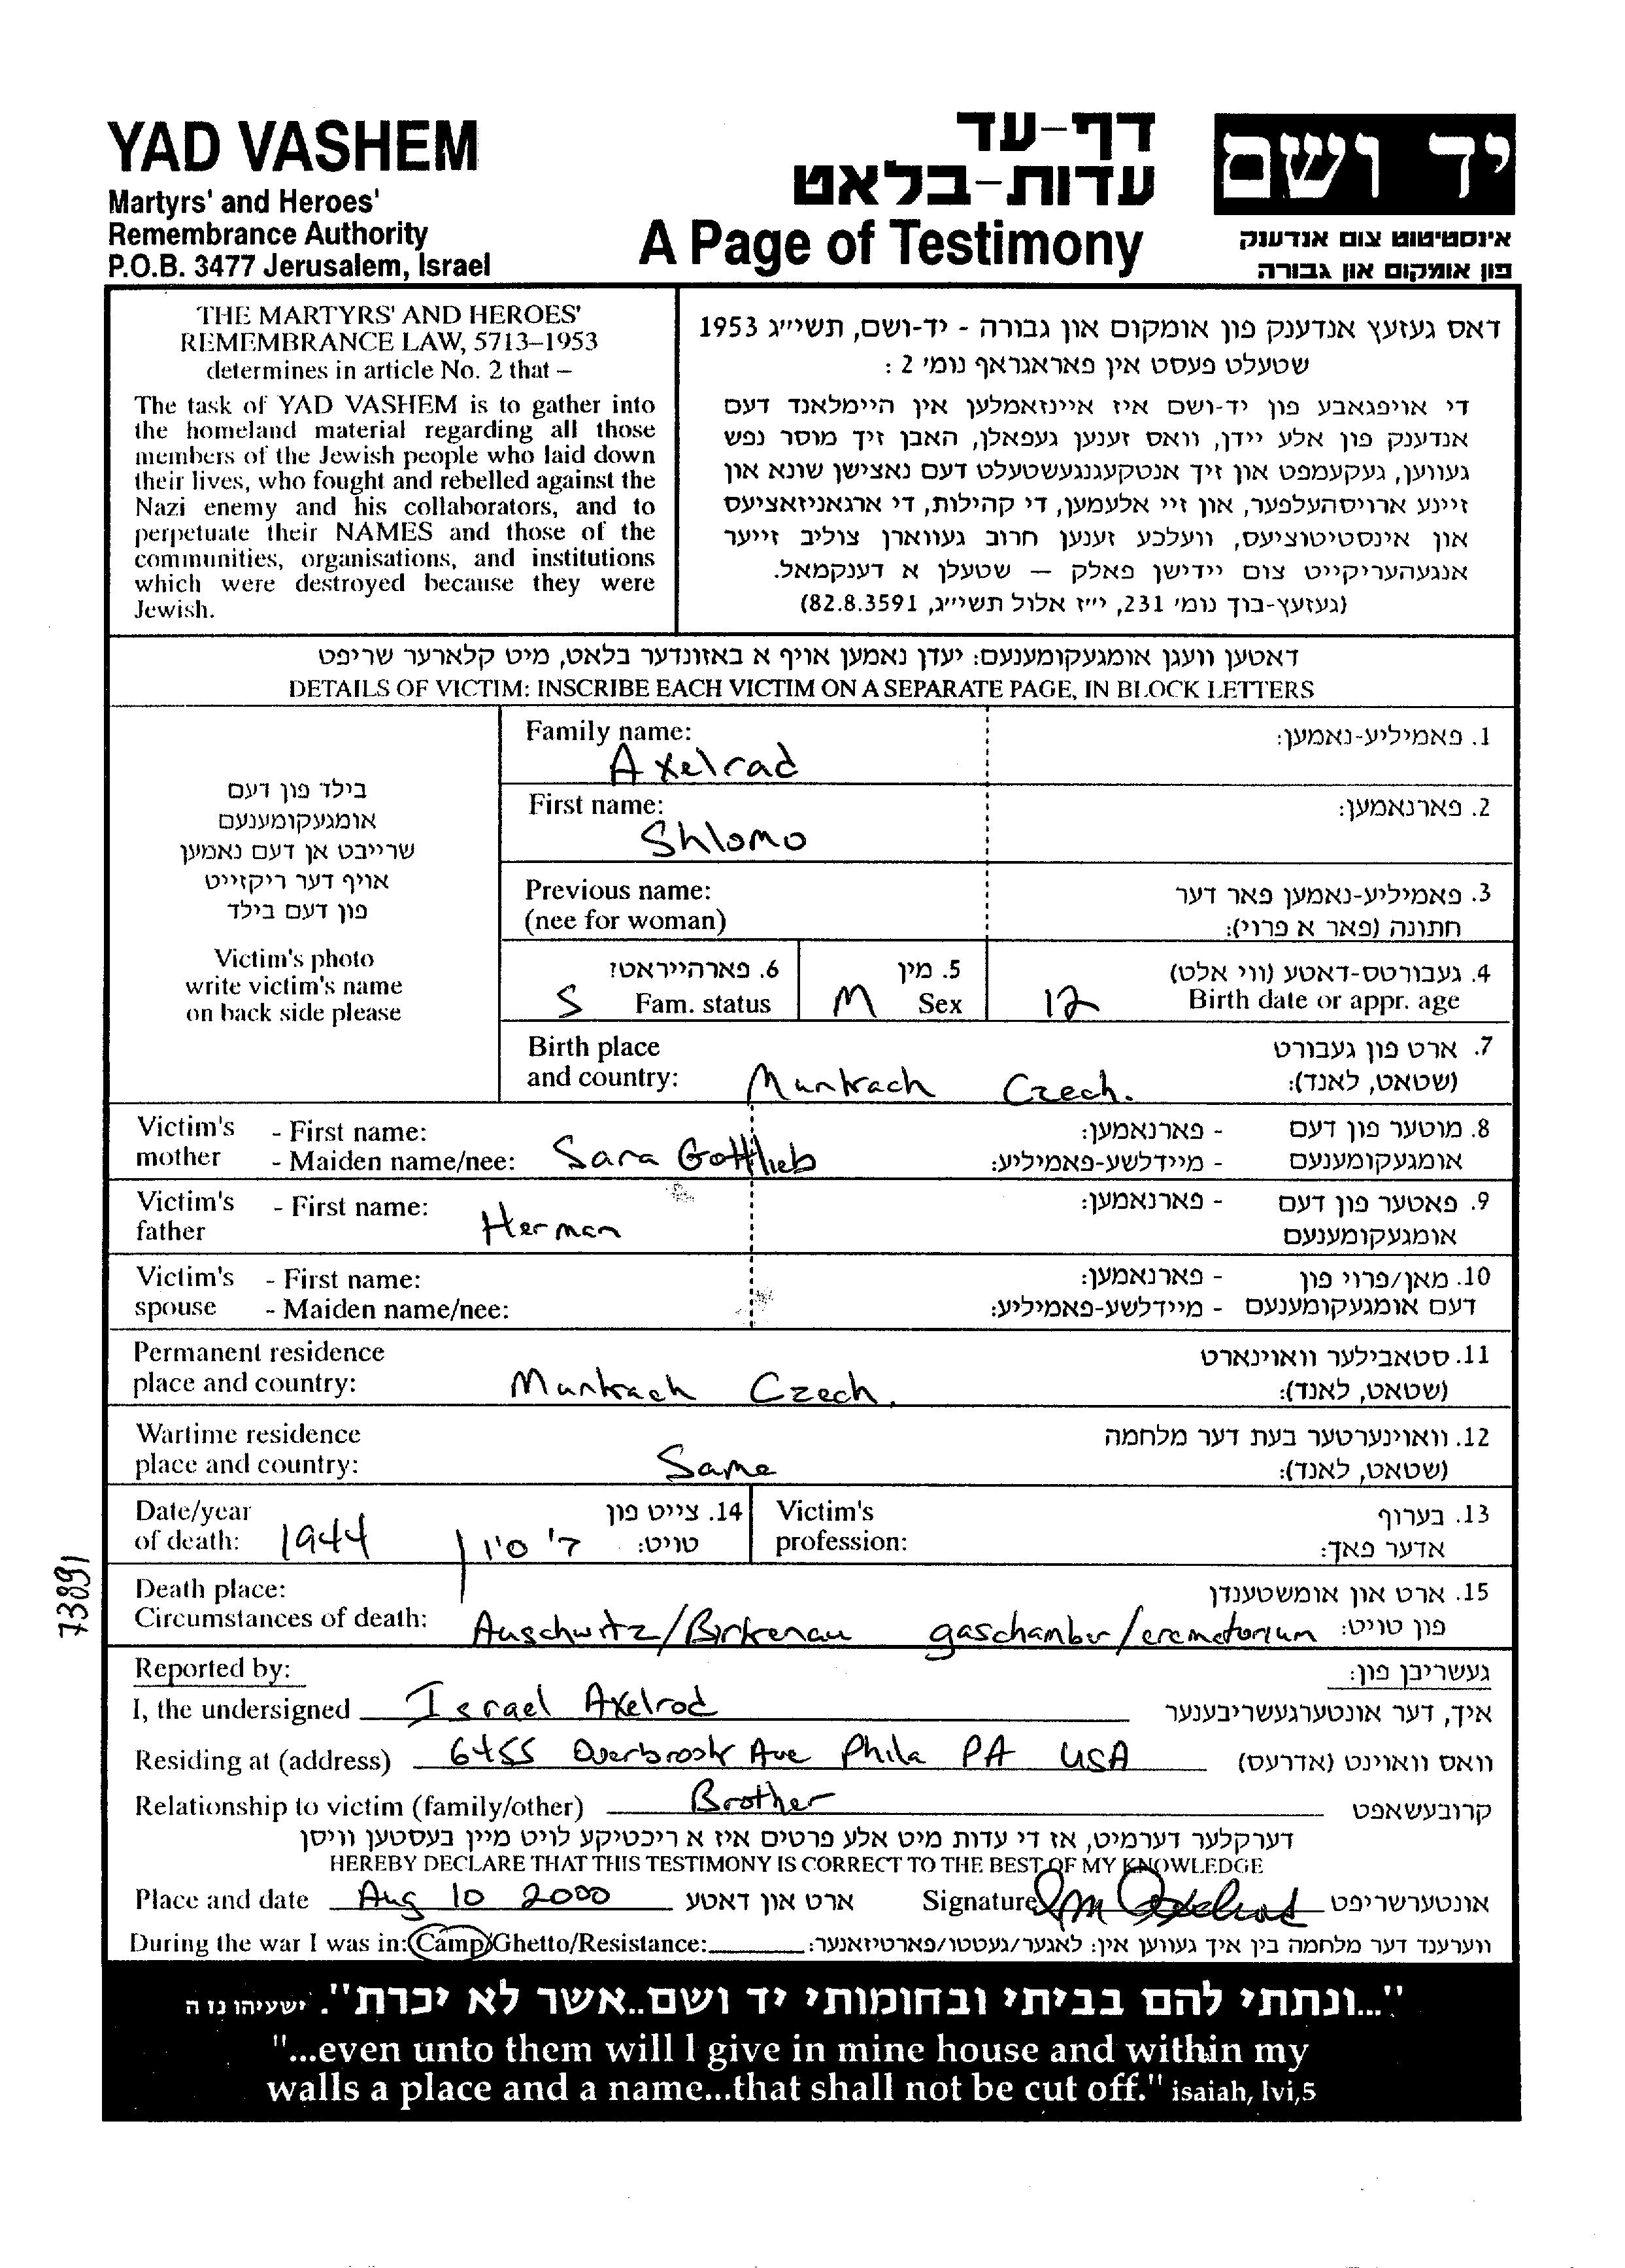 YAD VASHEM
Martyrs' and Heroes'
Remembrance Authority
P.O.B. 3477 Jerusalem, Israel
דף-עד
עדות-בלאט
A Page of Testimony
יד ושם
אינסטיטוט צום אנדענק
פון אומקום און גבורה
THE MARTYRS' AND HEROES'
REMEMBRANCE LAW, 5713–1953
determines in article No. 2 that –
The task of YAD VASHEM is to gather into
the homeland material regarding all those
members of the Jewish people who laid down
their lives, who fought and rebelled against the
Nazi enemy and his collaborators, and to
perpetuate their NAMES and those of the
communities, organisations, and institutions
which were destroyed because they were
Jewish.
דאס געזעץ אנדענק פון אומקום און גבורה - יד-ושם, תשי״ג 1953
שטעלט פעסט אין פאראגראף נומ׳ 2 :
די אויפגאבע פון יד-ושם איז איינזאמלען אין היימלאנד דעם
אנדענק פון אלע יידן, וואס זענען געפאלן, האבן זיך מוסר נפש
געווען, געקעמפט און זיך אנטקעגנגעשטעלט דעם נאצישן שונא און
זיינע ארויסהעלפער, און זיי אלעמען, די קהילות, די ארגאניזאציעס
און אינסטיטוציעס, וועלכע זענען חרוב געווארן צוליב זייער
אנגעהעריקייט צום יידישן פאלק — שטעלן א דענקמאל.
(געזעץ-בוך נומ׳ 132, י״ז אלול תשי״ג, 28.8.1953)
דאטען וועגן אומגעקומענעם: יעדן נאמען אויף א באזונדער בלאט, מיט קלארער שריפט
DETAILS OF VICTIM: INSCRIBE EACH VICTIM ON A SEPARATE PAGE, IN BLOCK LETTERS
בילד פון דעם
אומגעקומענעם
שרייבט אן דעם נאמען
אויף דער ריקזייט
פון דעם בילד
Victim's photo
write victim's name
on back side please
Family name: 1. פאמיליע-נאמען:
Axelrad
First name: 2. פארנאמען:
Shlomo
Previous name: 3. פאמיליע-נאמען פאר דער
(nee for woman) חתונה (פאר א פרוי):
6. פארהייראטז 5. מין 4. געבורטס-דאטע (ווי אלט)
S Fam. status M Sex 12 Birth date or appr. age
Birth place 7. ארט פון געבורט
and country: Munkach Czech. (שטאט, לאנד):
Victim's - First name: - פארנאמען: 8. מוטער פון דעם
mother - Maiden name/nee: Sara Gottlieb - מיידלשע-פאמיליע: אומגעקומענעם
Victim's - First name: - פארנאמען: 9. פאטער פון דעם
father Herman אומגעקומענעם
Victim's - First name: - פארנאמען: 10. מאן/פרוי פון
spouse - Maiden name/nee: - מיידלשע-פאמיליע: דעם אומגעקומענעם
Permanent residence 11. סטאבילער וואוינארט
place and country: Munkach Czech. (שטאט, לאנד):
Wartime residence 12. וואוינערטער בעת דער מלחמה
place and country: Same (שטאט, לאנד):
Date/year 14. צייט פון Victim's 13. בערוף
of death: 1944 ד' סיון טויט: profession: אדער פאך:
Death place: 15. ארט און אומשטענדן
Circumstances of death: Auschwitz/Birkenau gaschamber/crematorium פון טויט:
73891
Reported by: געשריבן פון:
I, the undersigned Israel Axelrod איך, דער אונטערגעשריבענער
Residing at (address) 6455 Overbrook Ave Phila PA USA וואס וואוינט (אדרעס)
Relationship to victim (family/other) Brother קרובעשאפט
דערקלער דערמיט, אז די עדות מיט אלע פרטים איז א ריכטיקע לויט מיין בעסטען וויסן
HEREBY DECLARE THAT THIS TESTIMONY IS CORRECT TO THE BEST OF MY KNOWLEDGE
Place and date Aug 10 2000 ארט און דאטע Signature אונטערשריפט
During the war I was in: Camp/Ghetto/Resistance: ווערענד דער מלחמה בין איך געווען אין: לאגער/געטטו/פארטיזאנער:
"...ונתתי להם בביתי ובחומותי יד ושם..אשר לא יכרת". ישעיהו נז ה
"...even unto them will I give in mine house and within my
walls a place and a name...that shall not be cut off." isaiah, lvi,5